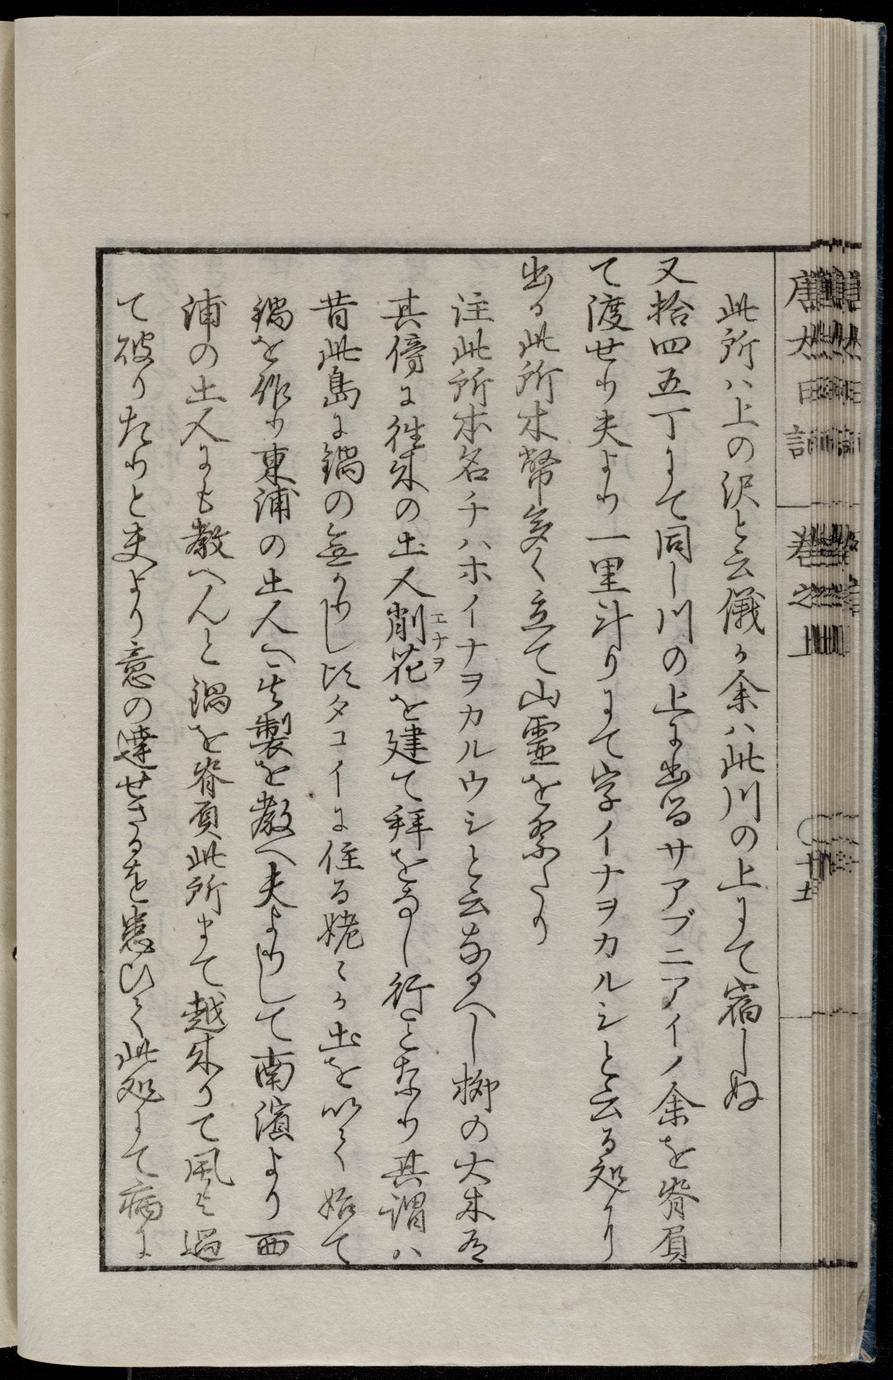 唐太日記 巻之上 十七
此所ハ上の沢と云儀か余ハ此川の上にて宿しぬ
又拾四五丁にて同し川の上に出るサアブニアイノ余を脊負
て渡せり夫より一里斗りにて字イナヲカルシと云る処に
出る此所木幣多く立て山霊を祭たり
注此所本名チハホイナヲカルウシと云なるへし柳の大木有
其傍に往来の土人削花を建て拝をなし行となり其謂ハ
エナヲ
昔此島に鍋の無かりし頃タコイに住る姥か土を以て始て
鍋を作り東浦の土人へ其製を教へ夫よりして南濱より西
浦の土人にも教へんと鍋を脊負此所まて越来りて風と過
て破りたりと夫より意の達せさるを患ひて此処にて病に